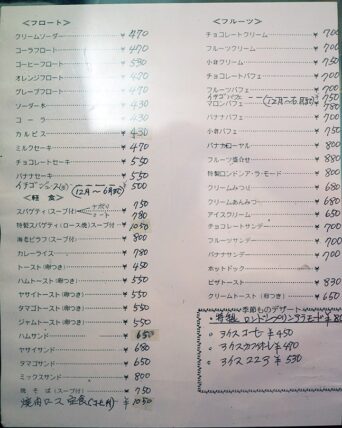 ＜フロート＞
クリームソーダー ¥470
コーラフロート ¥470
コーヒーフロート ¥530
オレンジフロート ¥470
グレープフロート ¥470
ソーダー水 ¥430
コーラ ¥430
カルピス ¥430
ミルクセーキ ¥470
チョコレートセーキ ¥550
バナナセーキ ¥550
イチゴジュース(生) (12月〜6月迄) 500
＜軽食＞
スパゲティ(スープ付) ナポリ ¥750
ミート 780
特製スパゲティ(ロース焼)スープ付 ¥1050
海老ピラフ(スープ付) ¥800
カレーライス ¥780
トースト(卵つき) ¥450
ハムトースト(卵つき) ¥550
ヤサイトースト(卵つき) ¥550
タマゴトースト(卵つき) ¥550
ジャムトースト(卵つき) ¥550
ハムサンド ¥650
ヤサイサンド ¥680
タマゴサンド ¥650
ミックスサンド ¥800
焼そば(スープ付) ¥750
焼肉ロース定食 ¥1050
＜フルーツ＞
チョコレートクリーム ¥700
フルーツクリーム ¥700
小倉クリーム ¥750
チョコレートパフェ ¥700
フルーツパフェ ¥700
イチゴパフェ (12月〜6月迄) ¥750
マロンパフェ ¥780
バナナパフェ ¥700
小倉パフェ ¥750
バナナローヤル ¥800
フルーツ盛合せ ¥880
特製コンドンア・ラ・モード ¥800
クリームみつ豆 ¥680
クリームあんみつ ¥680
アイスクリーム ¥650
チョコレートサンデー ¥700
フルーツサンデー ¥700
バナナサンデー ¥700
ホットドック
ピザトースト ¥830
クリームトースト(卵つき) ¥650
季節ものデザート
ヨイスコーヒー ¥450
ヨイスカフェオーレ ¥490
ヨイスココア ¥530